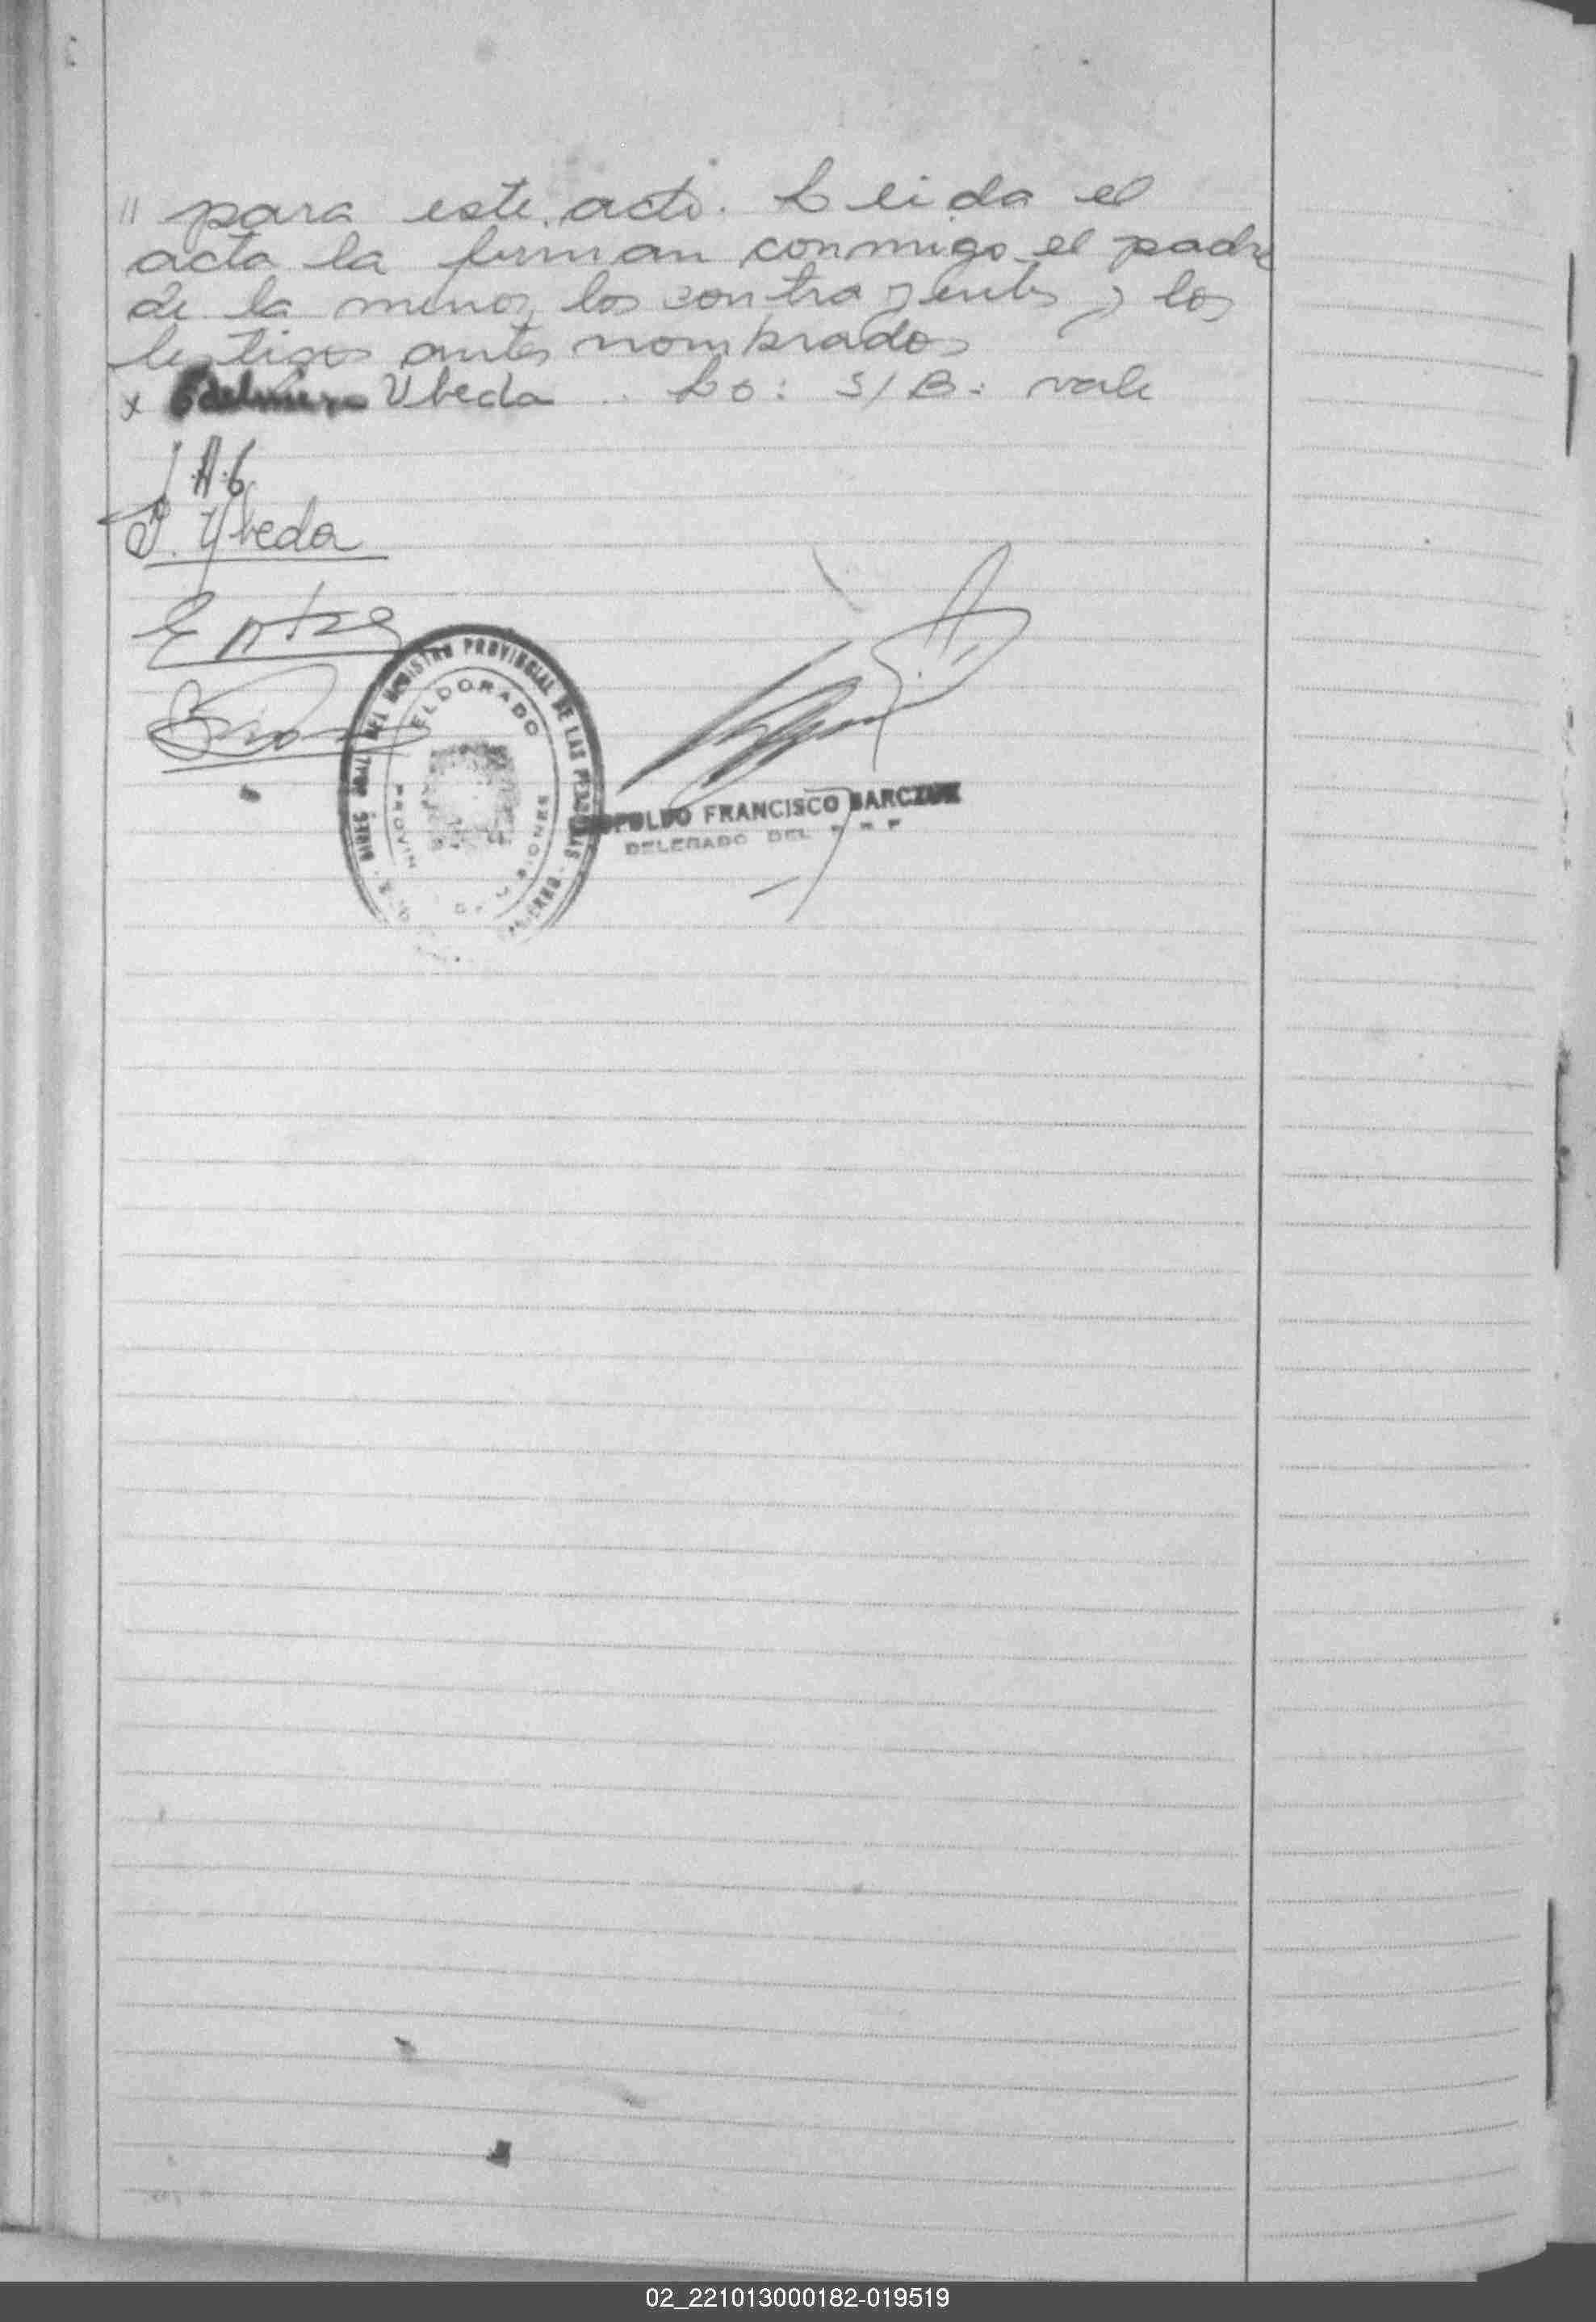 " para este acto. Leida el
acta la firman conmigo el padre
de la menor, los contrayentes y los
testigos antes nombrados
x Edelmira Ubeda .. Lo: S/B: vale
J.A.G
P. Ybeda
DEL REGISTRO PROVINCIAL DE LAS PERSONAS
ELDORADO
FRANCISCO BARCZUK
DELEGADO DEL
02_221013000182-019519